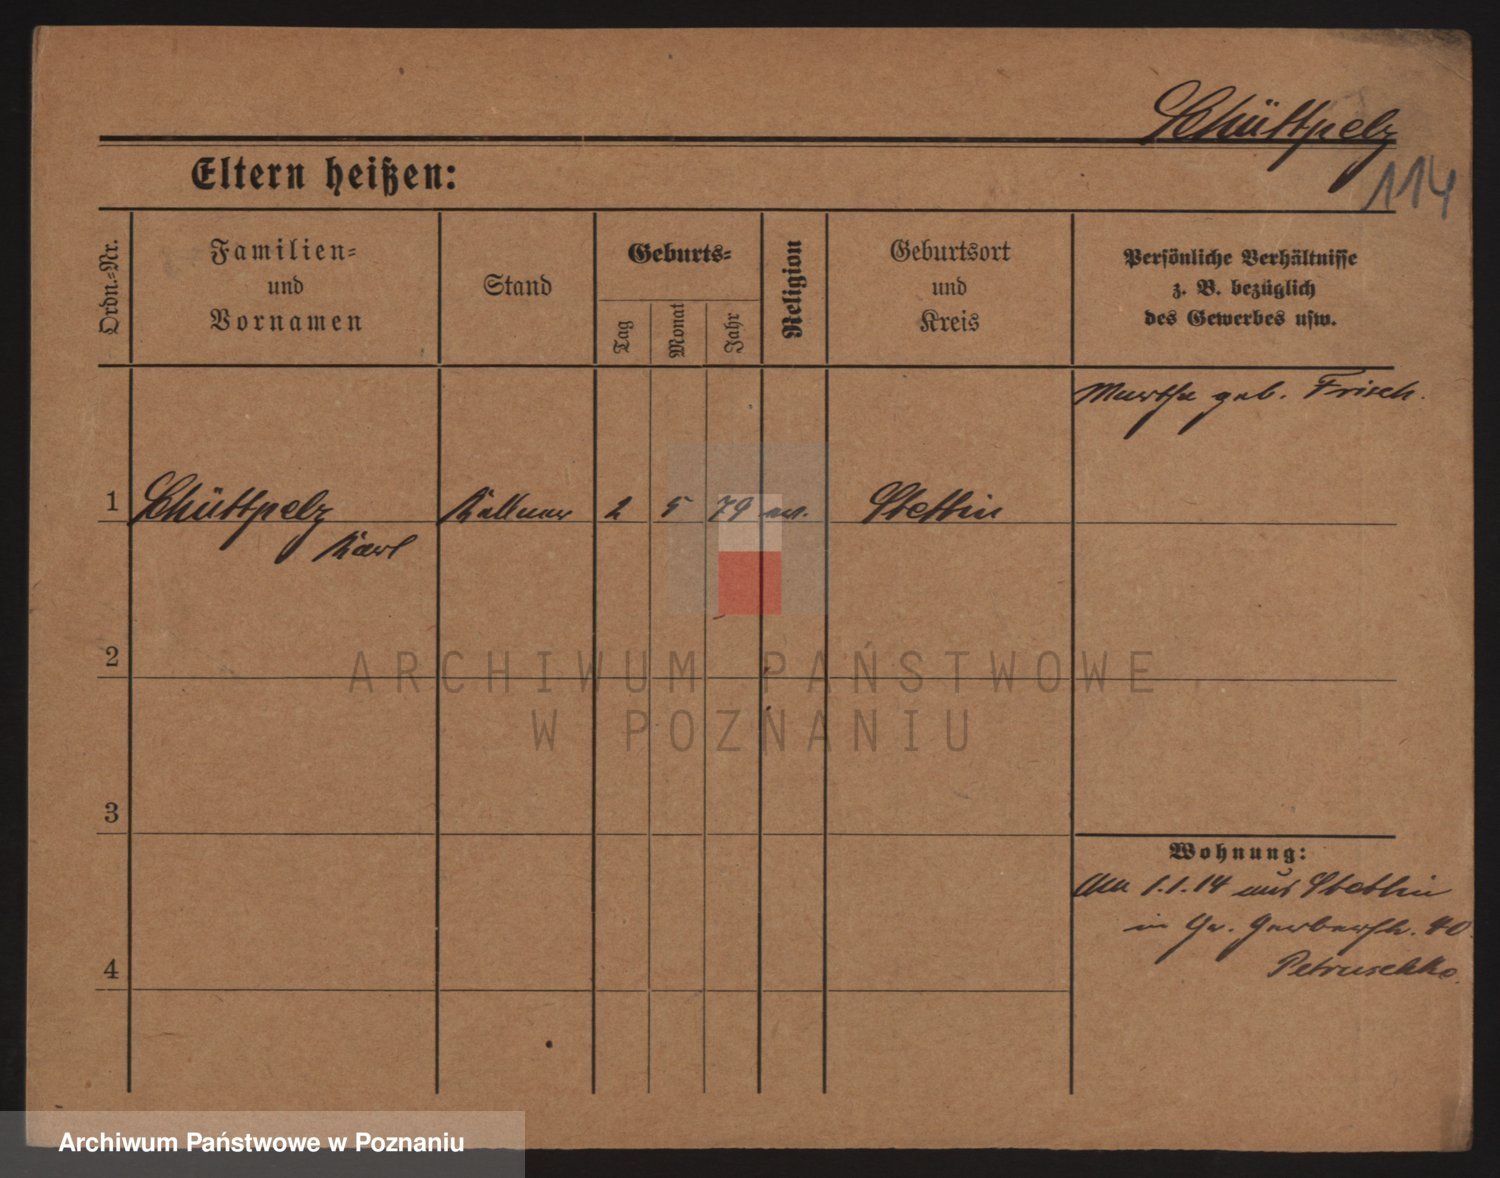 Schüttpelz
114
Eltern heißen:
Ordn.-Nr.
Familien-
und
Vornamen
Stand
Geburts-
Tag
Monat
Jahr
Religion
Geburtsort
und
Kreis
Persönliche Verhältnisse
z. B. bezüglich
des Gewerbes usw.
Martha geb. Frisch.
1 Schüttpelz Kellner 2 5 79 ev. Stettin
Karl
2
ARCHIWUM PAŃSTWOWE
W POZNANIU
3
Wohnung:
Am 1.1.14 aus Stettin
in Gr. Gerberstr. 40.
Petruschke.
4
Archiwum Państwowe w Poznaniu